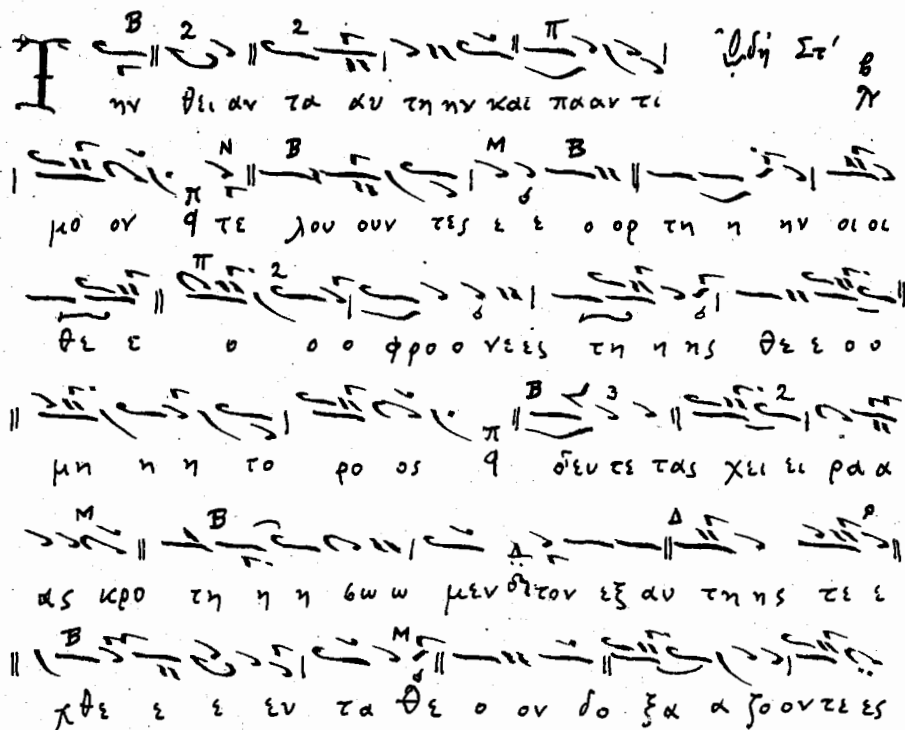 Ὠδή Στ'
Την θει αν τα αυ τη ην και πα αν τι
μο ον τε λου ουν τες ε ε ο ορ τη η ην οι οι
θε ε ο ο ο φρο ο νε ες τη η ης θε ε ο υ
μη η η το ρο ος δευ τε τας χει ει ρα α
ας κρο τη η η σω ω μεν τον εξ αυ τη ης τε ε
χθε ε ε εν τα Θε ο ον δο ξα α ζο ον τε ες